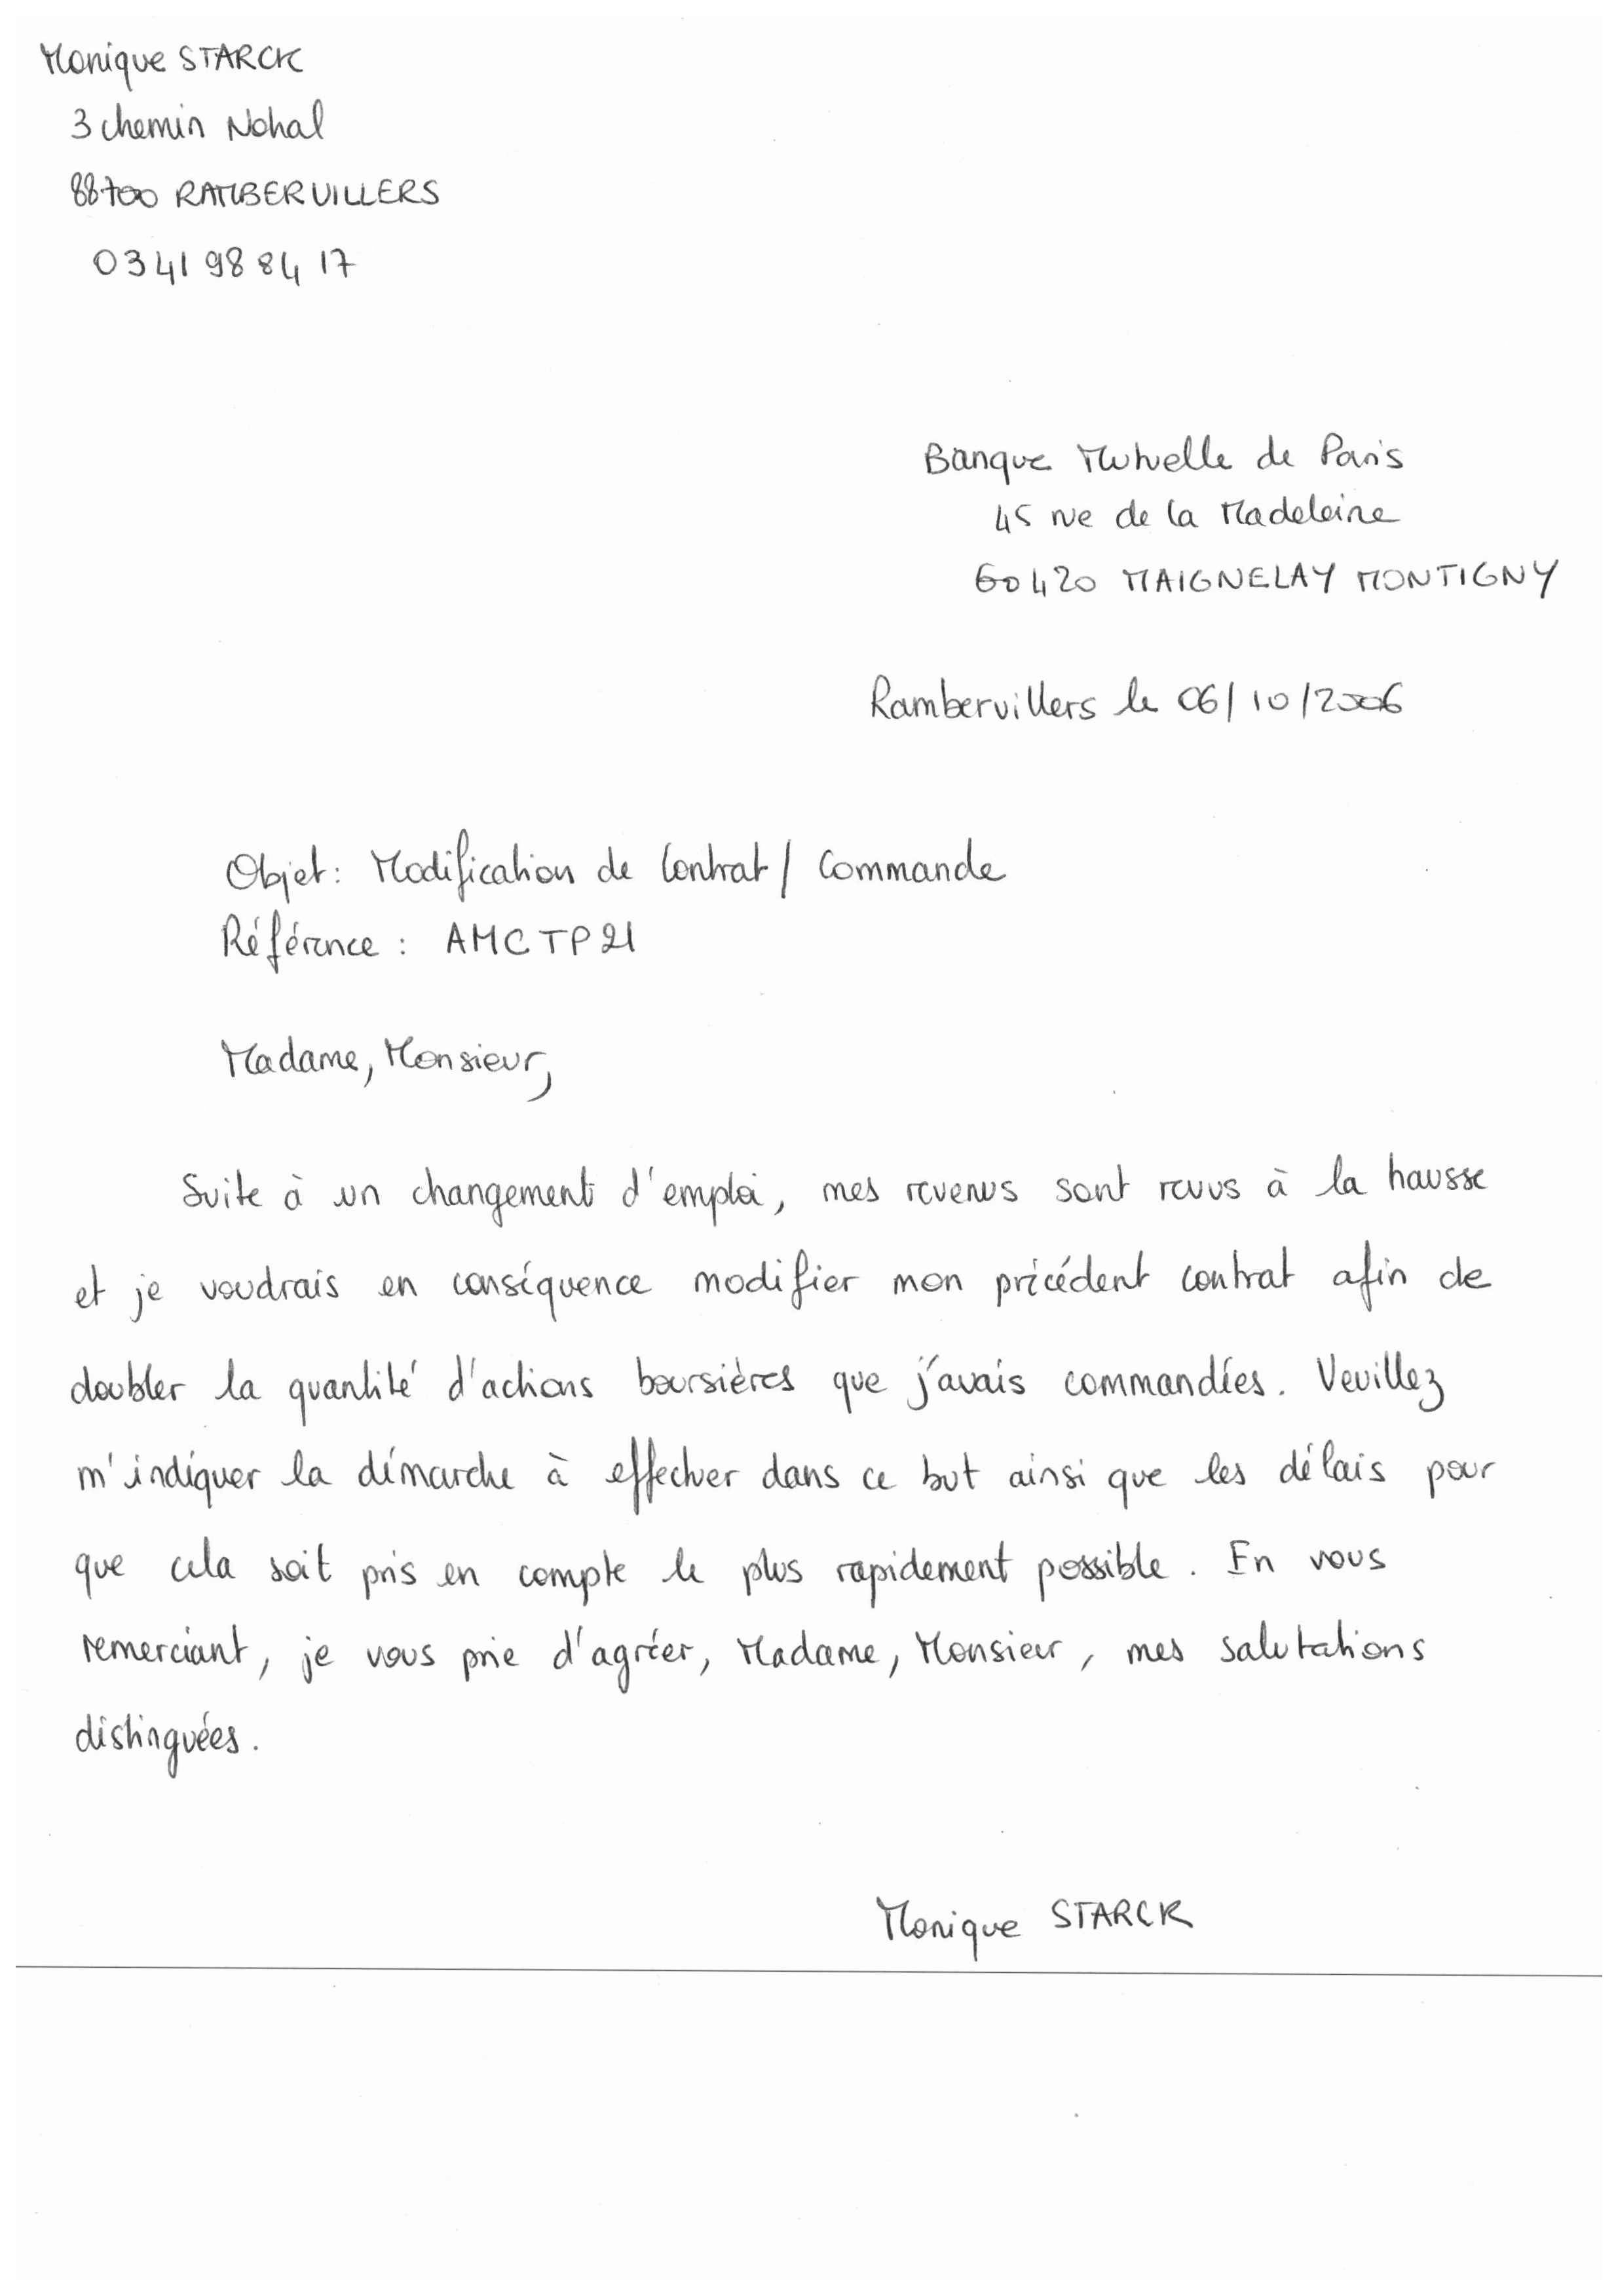 Monique STARCK
3 chemin Nohal
88700 RAMBERVILLERS
03 41 98 84 17
Banque Mutuelle de Paris
45 rue de la Madeleine
60420 MAIGNELAY MONTIGNY
Rambervillers le 06/10/2006
Objet: Modification de Contrat / Commande
Référence : AMCTP21
Madame, Monsieur,
Suite à un changement d'emploi, mes revenus sont revus à la hausse
et je voudrais en conséquence modifier mon précédent contrat afin de
doubler la quantité d'actions boursières que j'avais commandées. Veuillez
m'indiquer la démarche à effectuer dans ce but ainsi que les délais pour
que cela soit pris en compte le plus rapidement possible. En vous
remerciant, je vous prie d'agréer, Madame, Monsieur, mes salutations
distinguées.
Monique STARCK